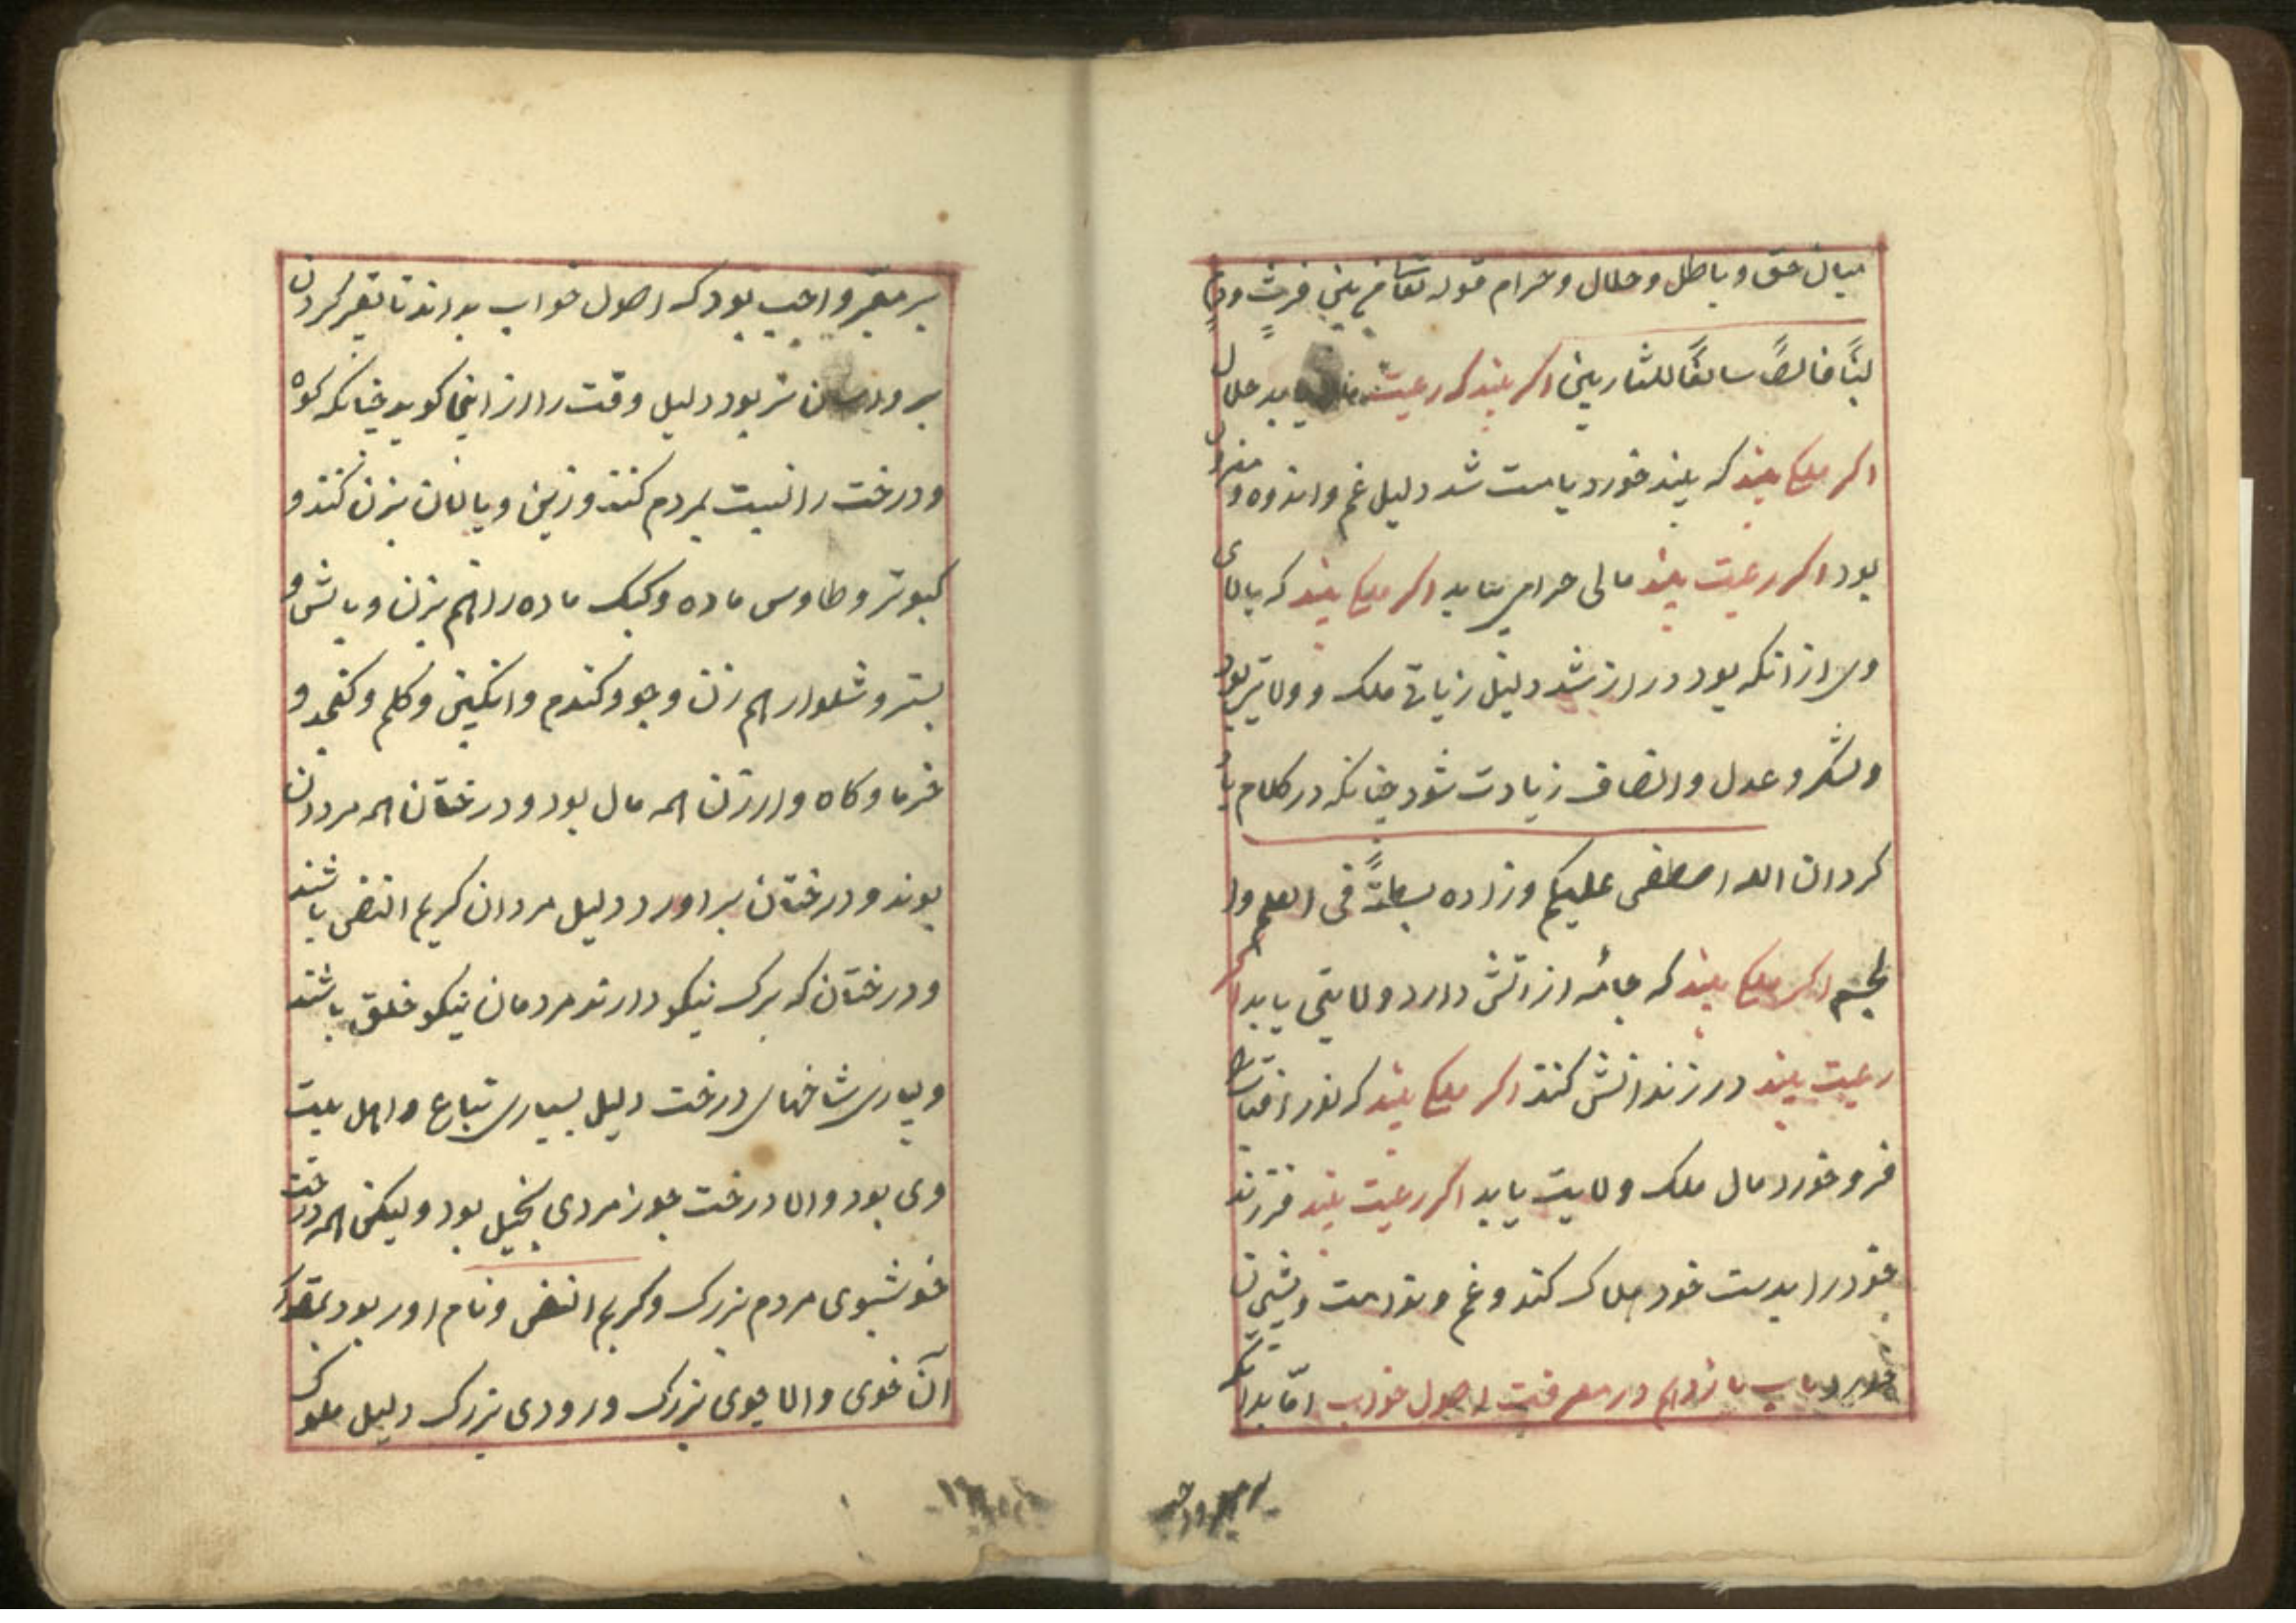 میان حق و باطل و حلال و حرام قوله تعا من بین فرث ودم
لبنًا خالصًا سائغًا للشاربین اکر بیند که رعیت یابد حلال
اکر ملکا بیند که بیند خورد یا مست شد دلیل غم و اندوه و
بود اکر رعیت بیند مالی حرام بیابد اکر ملکا بیند که بالای
وی از انکه بود دراز شد دلیل زیاتی ملک و ولایتی بود
و لشکر و عدل و انصاف زیادت شود چنانکه در کلام یاد
کرد ان الله اصطفی علیکم و زاده بسطةً فی العلم وا
لجسم اکر ملکا بیند که جامٔه از اتش دارد ولایتی یابد اکر
رعیت بیند در زندانش کنند اکر ملکا بیند که نور افتاب
فرو خورد مال ملک ولایت یابد اکر رعیت بیند فرزند
خود را بدست خود هلاک کند و غم و ندامت و پشیمان
خورد باب یازدهم در معرفت اصول خواب امّا بدانکه
بر معبر واجب
بر معبر واجب بود که اصول خواب بداند تا تعبیر کردن
بر وی اسان تر بود دلیل وقت را از اینجا کوید چنانکه کوه
و درخت را نسبت بمردم کنند و زین و پالان بزن کنند و
کبوتر و طاوس ماده و کبک ماده را هم بزن و بالش و
بستر و شلوار هم زن و جو و کندم و انکبین و کلم و کنجد و
خرما و کاه و ارزن همه مال بود و درختان همه مردان
بوند و درختان بر اورد دلیل مردان کریم النفس باشند
و درختان که برک نیکو دارند مردمان نیکو خلق باشند
و بسیاری شاخهای درخت دلیل بسیاری تباع و اهل بیت
وی بود و الا درخت جوز مردی بخیل بود ولیکن همه درخت
خوشبوی مردم بزرک و کریم النفس و نام اور بود بمقدار
آن خوی و الا جوی بزرک و رودی بزرک دلیل ملوک